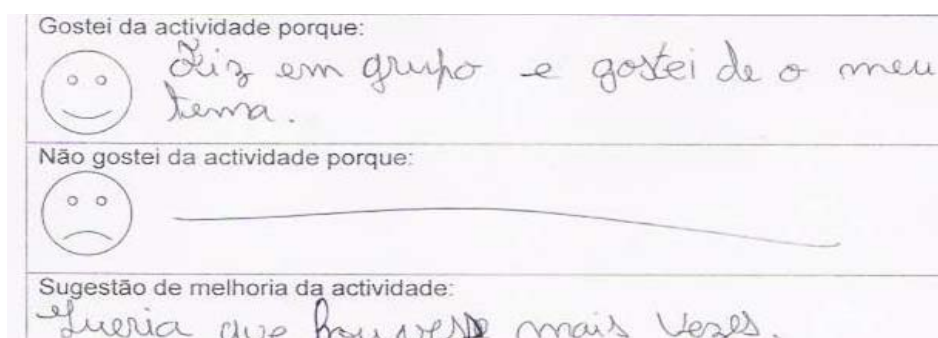 Gostei da actividade porque:
Fiz em grupo e gostei de o meu
tema.
Não gostei da actividade porque:
Sugestão de melhoria da actividade:
Queria que houvesse mais vezes.